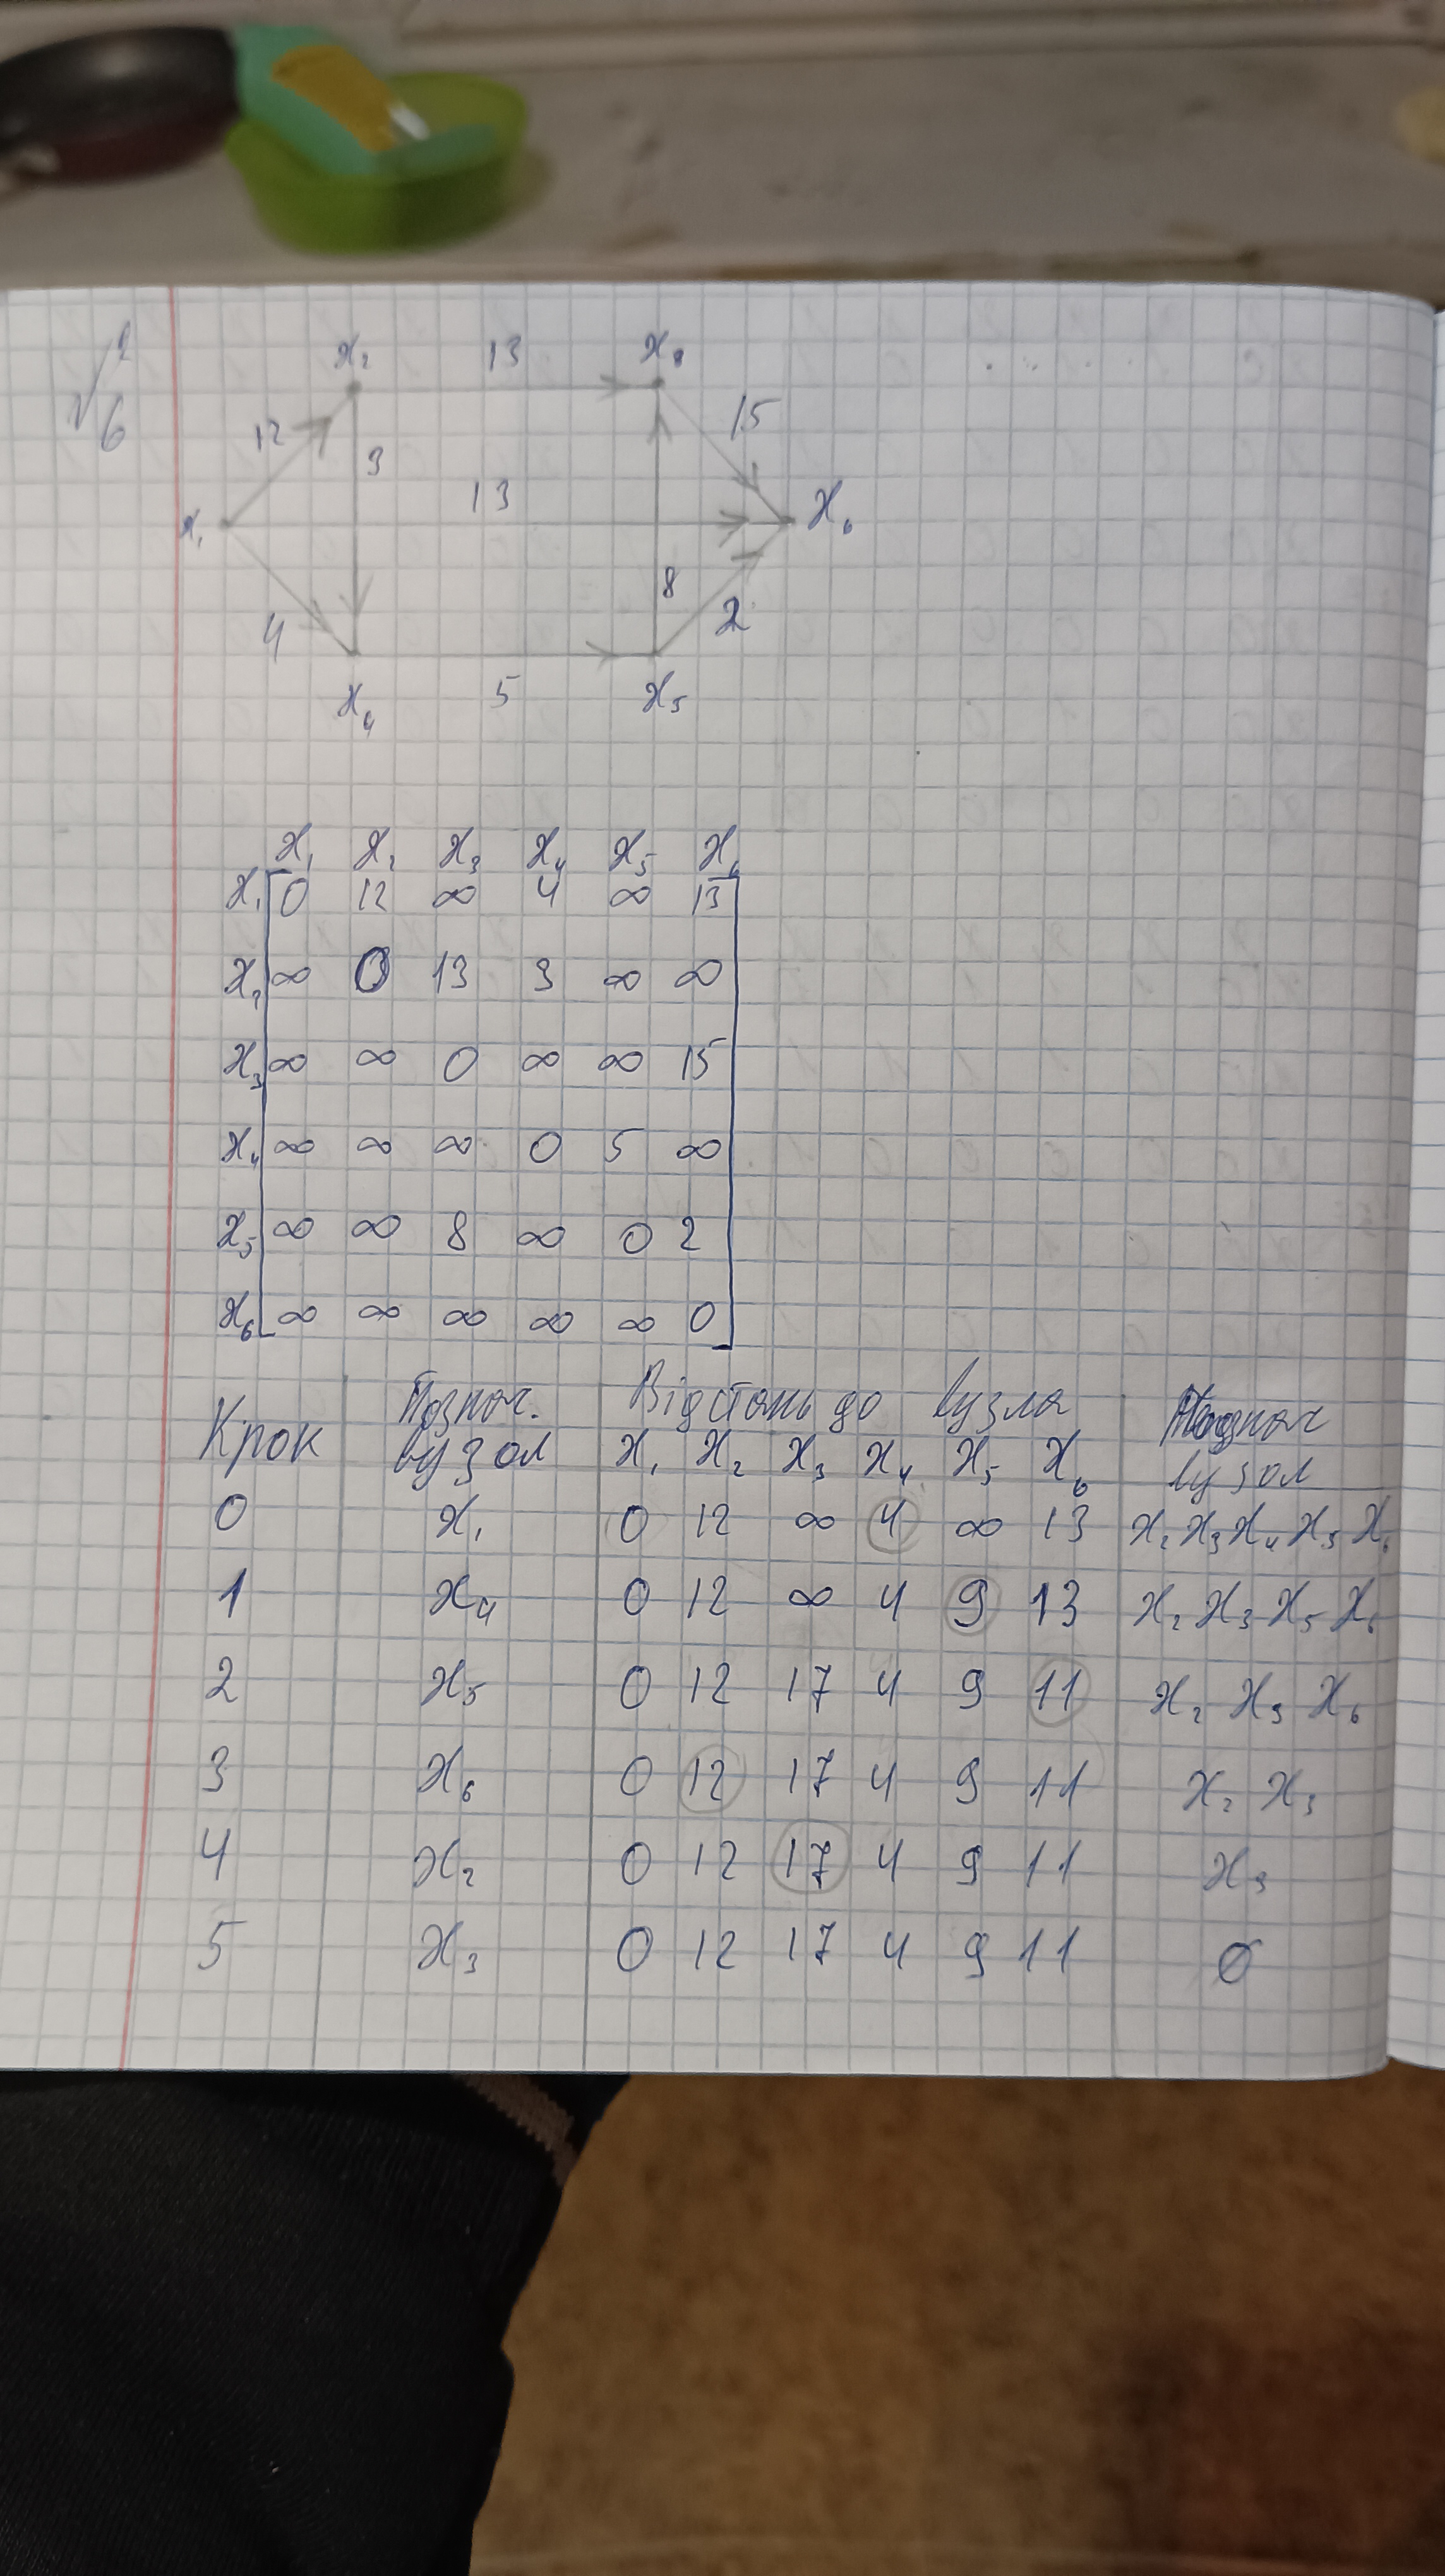 √6
x₂ 13 x₃
12 3 15
x₁ 13 x₆
4 8 2
x₄ 5 x₅
x₁ x₂ x₃ x₄ x₅ x₆
x₁ 0 12 ∞ 4 ∞ 13
x₂ ∞ 0 13 3 ∞ ∞
x₃ ∞ ∞ 0 ∞ ∞ 15
x₄ ∞ ∞ ∞ 0 5 ∞
x₅ ∞ ∞ 8 ∞ 0 2
x₆ ∞ ∞ ∞ ∞ ∞ 0
Крок Познач. вузол Відстань до вузла вузол
x₁ x₂ x₃ x₄ x₅ x₆
0 x₁ 0 12 ∞ 4 ∞ 13 x₂ x₃ x₄ x₅ x₆
1 x₄ 0 12 ∞ 4 9 13 x₂ x₃ x₅ x₆
2 x₅ 0 12 17 4 9 11 x₂ x₃ x₆
3 x₆ 0 12 17 4 9 11 x₂ x₃
4 x₂ 0 12 17 4 9 11 x₃
5 x₃ 0 12 17 4 9 11 Ø